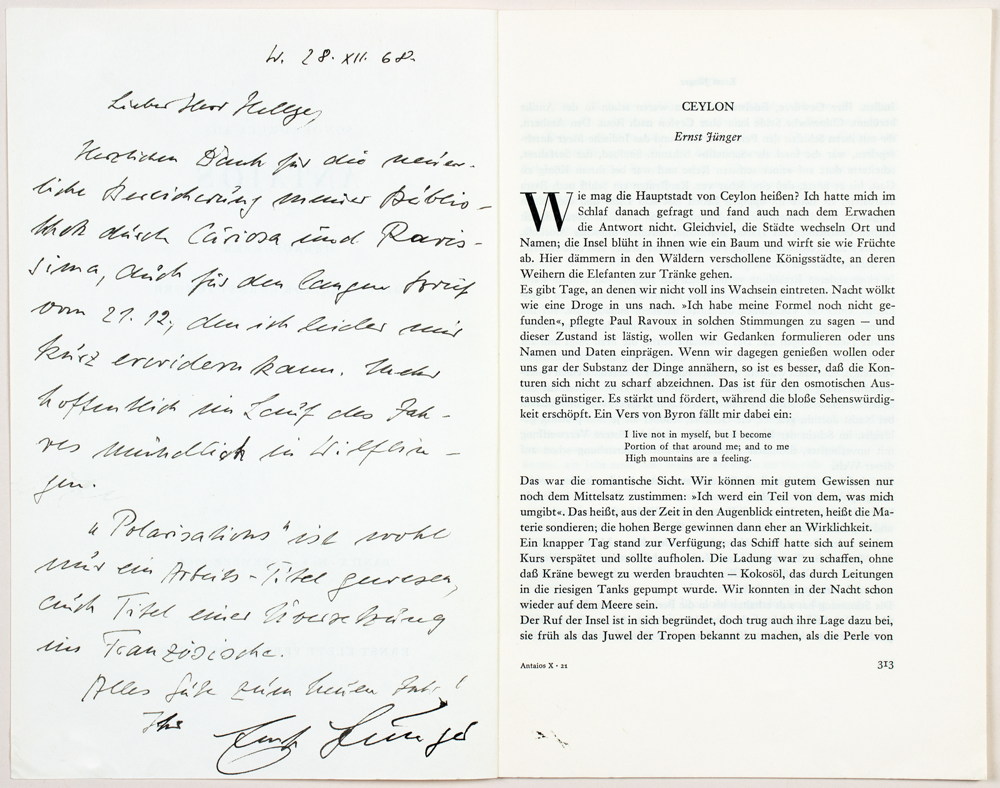 W. 28. XII. 68.
Lieber Herr
Herzlichen Dank für die neuer-
liche Bereicherung meiner Biblio-
thek durch Curiosa und Raris-
sima, auch für den langen Brief
vom 21. 12., den ich leider nur
kurz erwidern kann. Mehr
hoffentlich im Lauf des Jah-
res mündlich in Wilflin-
gen.
„Polarisations" ist wohl
nur ein Arbeits-Titel gewesen,
auch Titel einer Übersetzung
ins Französische.
Alles Gute zum Neuen Jahr!
Ihr
Ernst Jünger
CEYLON
Ernst Jünger
Wie mag die Hauptstadt von Ceylon heißen? Ich hatte mich im
Schlaf danach gefragt und fand auch nach dem Erwachen
die Antwort nicht. Gleichviel, die Städte wechseln Ort und
Namen; die Insel blüht in ihnen wie ein Baum und wirft sie wie Früchte
ab. Hier dämmern in den Wäldern verschollene Königsstädte, an deren
Weihern die Elefanten zur Tränke gehen.
Es gibt Tage, an denen wir nicht voll ins Wachsein eintreten. Nacht wölkt
wie eine Droge in uns nach. »Ich habe meine Formel noch nicht ge-
funden«, pflegte Paul Ravoux in solchen Stimmungen zu sagen — und
dieser Zustand ist lästig, wollen wir Gedanken formulieren oder uns
Namen und Daten einprägen. Wenn wir dagegen genießen wollen oder
uns gar der Substanz der Dinge annähern, so ist es besser, daß die Kon-
turen sich nicht zu scharf abzeichnen. Das ist für den osmotischen Aus-
tausch günstiger. Es stärkt und fördert, während die bloße Sehenswürdig-
keit erschöpft. Ein Vers von Byron fällt mir dabei ein:
I live not in myself, but I become
Portion of that around me; and to me
High mountains are a feeling.
Das war die romantische Sicht. Wir können mit gutem Gewissen nur
noch dem Mittelsatz zustimmen: »Ich werd ein Teil von dem, was mich
umgibt«. Das heißt, aus der Zeit in den Augenblick eintreten, heißt die Ma-
terie sondieren; die hohen Berge gewinnen dann eher an Wirklichkeit.
Ein knapper Tag stand zur Verfügung; das Schiff hatte sich auf seinem
Kurs verspätet und sollte aufholen. Die Ladung war zu schaffen, ohne
daß Kräne bewegt zu werden brauchten — Kokosöl, das durch Leitungen
in die riesigen Tanks gepumpt wurde. Wir konnten in der Nacht schon
wieder auf dem Meere sein.
Der Ruf der Insel ist in sich begründet, doch trug auch ihre Lage dazu bei,
sie früh als das Juwel der Tropen bekannt zu machen, als die Perle von
Antaios X · 21
313